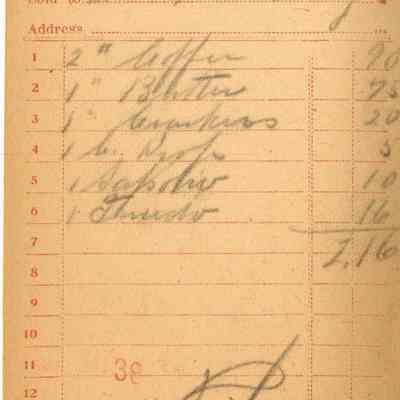 Sold to
Address
1 2 " Coffee 90
2 1 " Butter 75
3 1 " Crackers 20
4 1 5
5 1 Sapolio 10
6 1 16
7 2.16
8
9
10
11 38
12